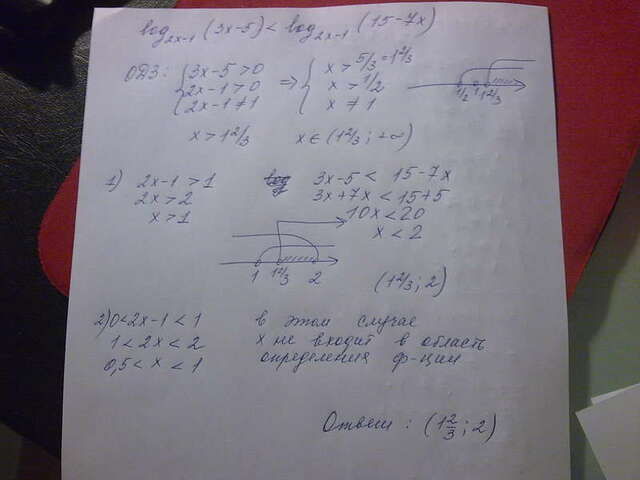 log₂ₓ₋₁ (3x-5) < log₂ₓ₋₁ (15-7x)
ОДЗ: { 3x-5>0 => { x > 5/3 = 1 2/3
2x-1>0 x > 1/2
2x-1≠1 x ≠ 1
1/2 1 1 2/3
x>1 2/3 x∈(1 2/3; +∞)
1) 2x-1>1 3x-5 < 15-7x
2x>2 3x+7x<15+5
x>1 10x<20
x<2
1 1 2/3 2
(1 2/3; 2)
2) 0<2x-1<1 в этом случае
1<2x<2 x не входит в область
0,5<x<1 определения ф-ции
Ответ: (1 2/3; 2)